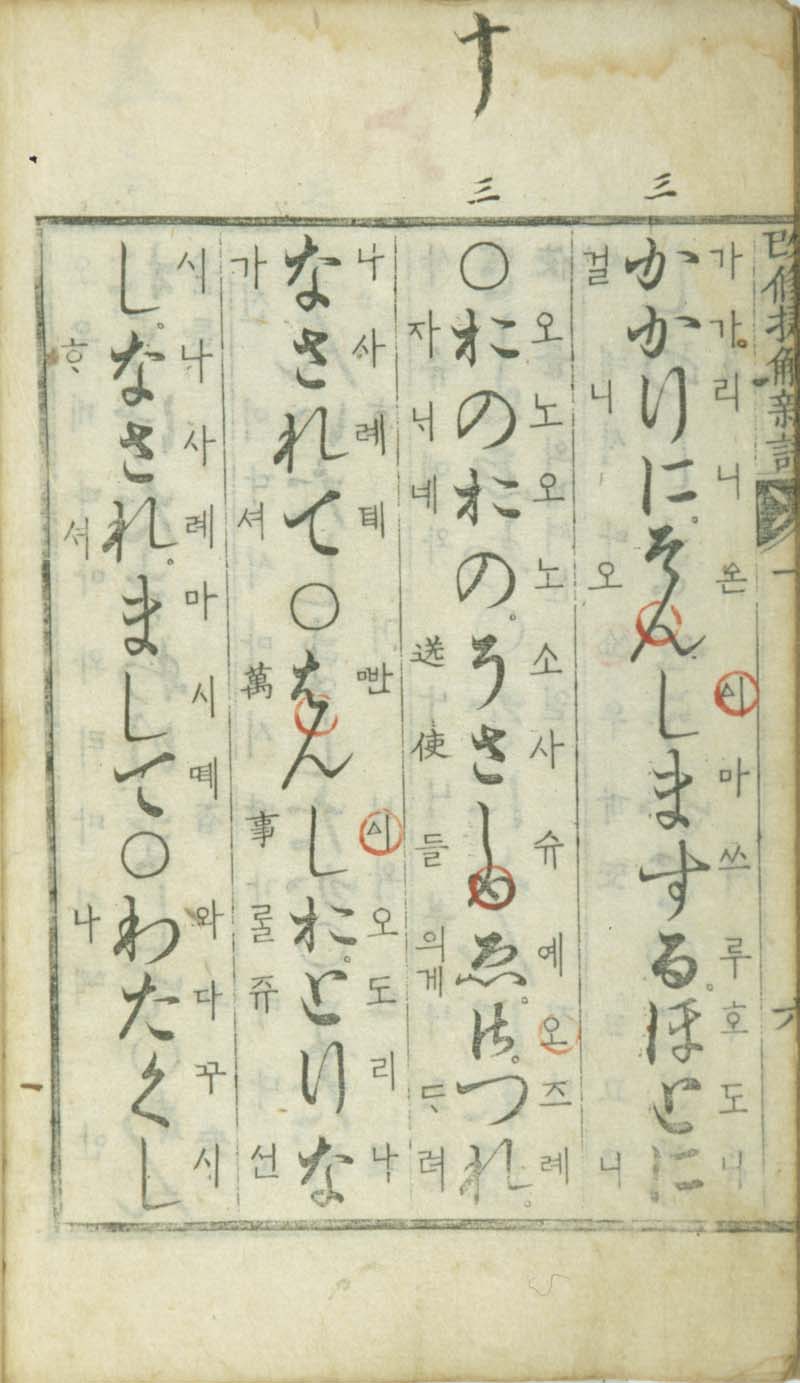 改修捷解新語 一 六
三
가가리니온시마쓰루호도니
かかりに。そんしまする。ほとに
걸니오니
三
오노오노소사슈예오즈레
○おのおの。うさし ゑ。 。つれ。
자닉네送使들의게ᄃᆞ려
나사례톄ᄲᅡᆫ시오도리나
なされて○はんしお。とりな
가셔萬事ᄅᆞᆯ쥬션
시나사례마시뗴와다꾸시
し。なされ。まして○わたくし
ᄒᆞ셔나